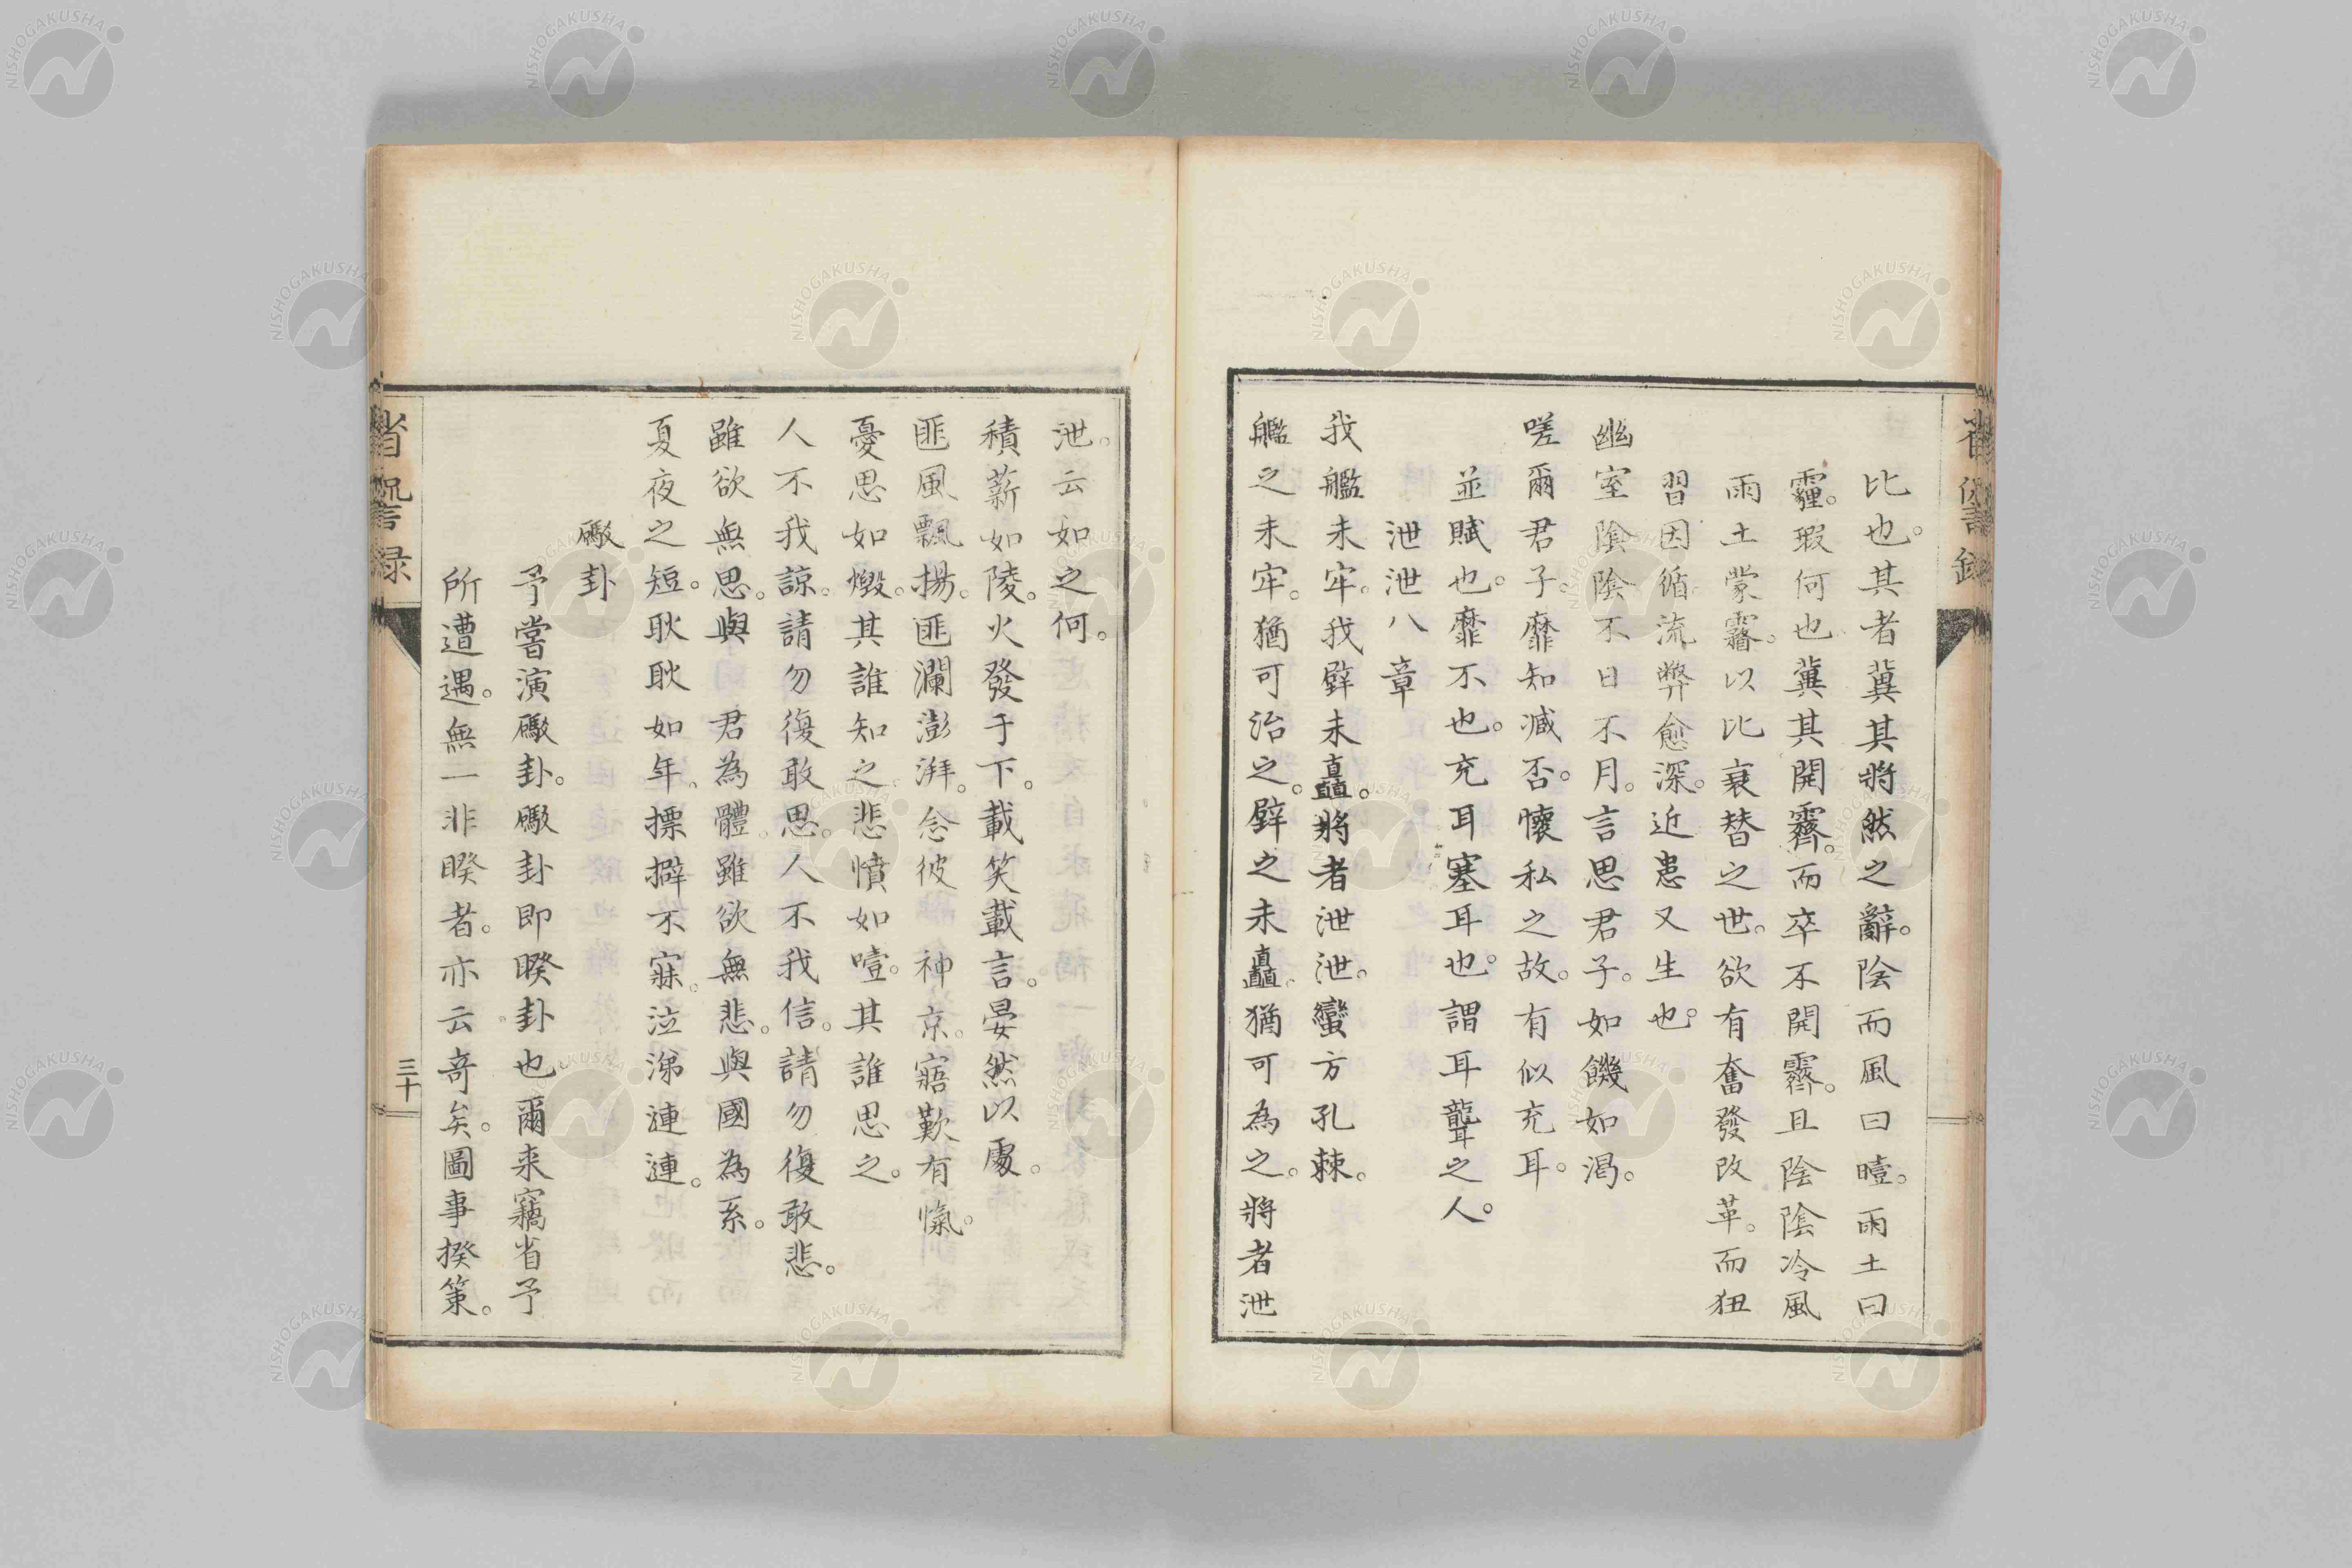 比也。其者冀其將然之辭。陰而風曰曀。雨土曰
霾。瑕何也冀其開霽。而卒不開霽。且陰陰冷風
雨土蒙霿。以比衰替之世。欲有奮發改革。而狃
習因循流弊愈深。近患又生也。
幽室陰陰不日不月。言思君子。如饑如渴。
嗟爾君子。靡知减否。懷私之故。有似充耳。
並賦也。靡不也。充耳塞耳也。謂耳聾之人。
泄泄八章
我艦未牢。我壁未矗。將者泄泄。蠻方孔棘。
艦之未牢。猶可治之。壁之未矗。猶可為之。將者泄
泄。云如之何。
積薪如陵。火發于下。載笑載言。晏然以處。
匪風飄揚。匪瀾澎湃。念彼 神京。寤歎有愾。
憂思如燬。其誰知之。悲憤如噎。其誰思之。
人不我諒。請勿復敢思。人不我信。請勿復敢悲。
雖欲無思。與 君為體。雖欲無悲。與國為系。
夏夜之短。耿耿如年。摽擗不寐。泣涕漣漣。
礮卦
予嘗演礮卦。礮卦即睽卦也爾来竊省予
所遭遇。無一非睽者。亦云奇矣。圖事揆策。
省諐録
三十
NISHOGAKUSHA